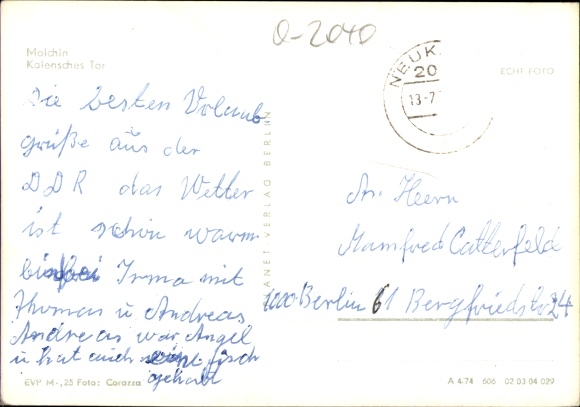 O-2040
Malchin
Kalensches Tor
NEUK
20
13-7
ECHT FOTO
Die besten Urlaub
grüße aus der
DDR das Wetter
ist schön warm
bin bei Irma mit
Thomas u Andreas
Andreas war Angel
u hat auch eine fisch
gehabt
PLANET-VERLAG BERLIN
An Herrn
Manfred Catterfeld
1000 Berlin 61 Bergfriedstr 24
EVP M -,25 Foto: Corazza
A 4/74 606 02 03 04 029